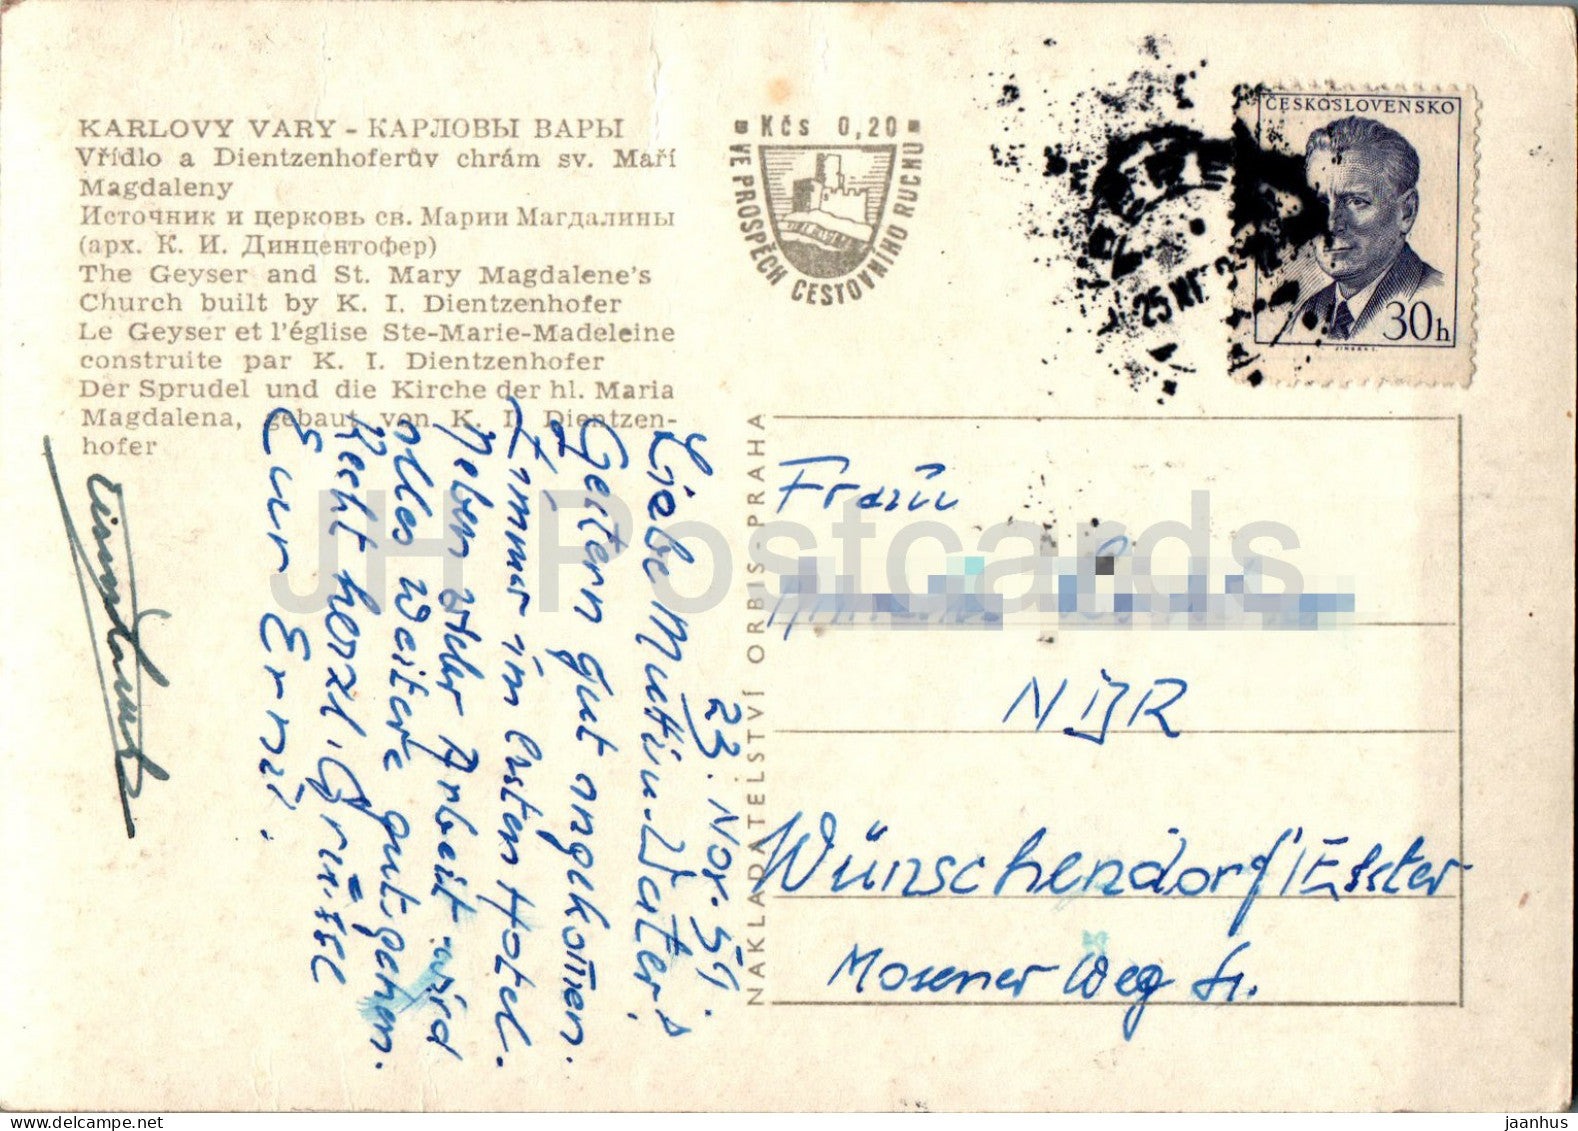 KARLOVY VARY - КАРЛОВЫ ВАРЫ
Vřídlo a Dientzenhoferův chrám sv. Maří
Magdaleny
Источник и церковь св. Марии Магдалины
(арх. К. И. Динцентофер)
The Geyser and St. Mary Magdalene's
Church built by K. I. Dientzenhofer
Le Geyser et l'église Ste-Marie-Madeleine
construite par K. I. Dientzenhofer
Der Sprudel und die Kirche der hl. Maria
Magdalena, gebaut von K. I. Dientzen-
hofer
Kčs 0,20
VE PROSPĚCH CESTOVNÍHO RUCHU
ČESKOSLOVENSKO
30h
25 XI
23. Nov. 59.
Liebe Mutti u. Vater,
Gestern gut angekom̄en.
Zimmer im ersten Hotel.
Neben sehr Arbeit wird
alles Weitere gut gehen.
Recht herzl. Grüsse
Eur Erni.
NAKLADATELSTVÍ ORBIS-PRAHA
Frau
NBR
Wünschendorf/Elster
Mosener Weg
JH Postcards
www.delcampe.net
jaanhus